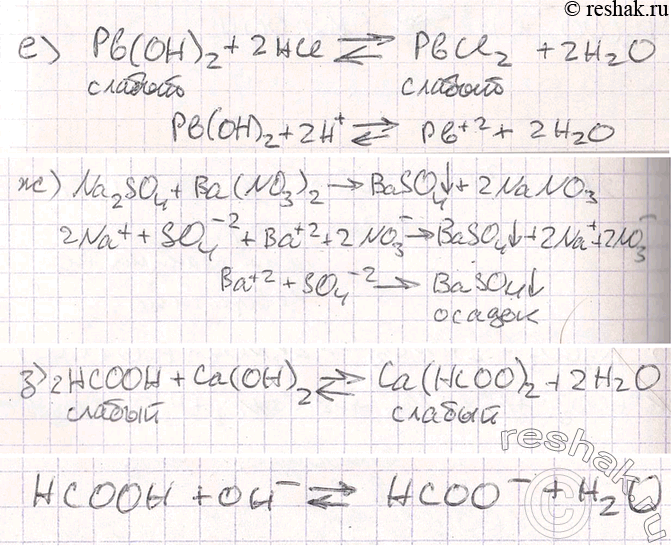 © reshak.ru
е) Pb(OH)₂ + 2HCl ⇄ PbCl₂ + 2H₂O
слабый слабый
Pb(OH)₂ + 2H⁺ ⇄ Pb⁺² + 2H₂O
ж) Na₂SO₄ + Ba(NO₃)₂ → BaSO₄↓ + 2NaNO₃
2Na⁺ + SO₄⁻² + Ba⁺² + 2NO₃⁻ → BaSO₄↓ + 2Na⁺ + 2NO₃⁻
Ba⁺² + SO₄⁻² → BaSO₄↓
осадок
з) 2HCOOH + Ca(OH)₂ ⇄ Ca(HCOO)₂ + 2H₂O
слабый слабый
HCOOH + OH⁻ ⇄ HCOO⁻ + H₂O
reshak.ru